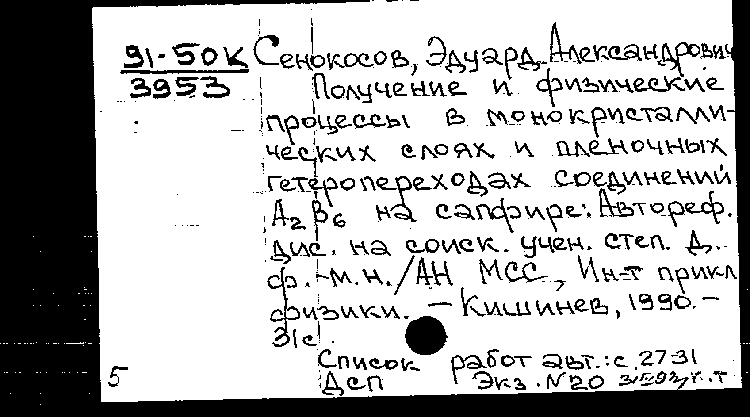 91-50К Сенокосов, Эдуард Александрович
3953 Получение и физические
процессы в монокристалли-
ческих слоях и пленочных
гетеропереходах соединений
A₂B₆ на сапфире: Автореф.
дис. на соиск. учен. степ. д.
ф.-м.н./АН МСС, Ин-т прикл
физики. – Кишинев, 1990.–
31с.
Список работ авт.: с. 27-31
5 ДСП Экз. N20